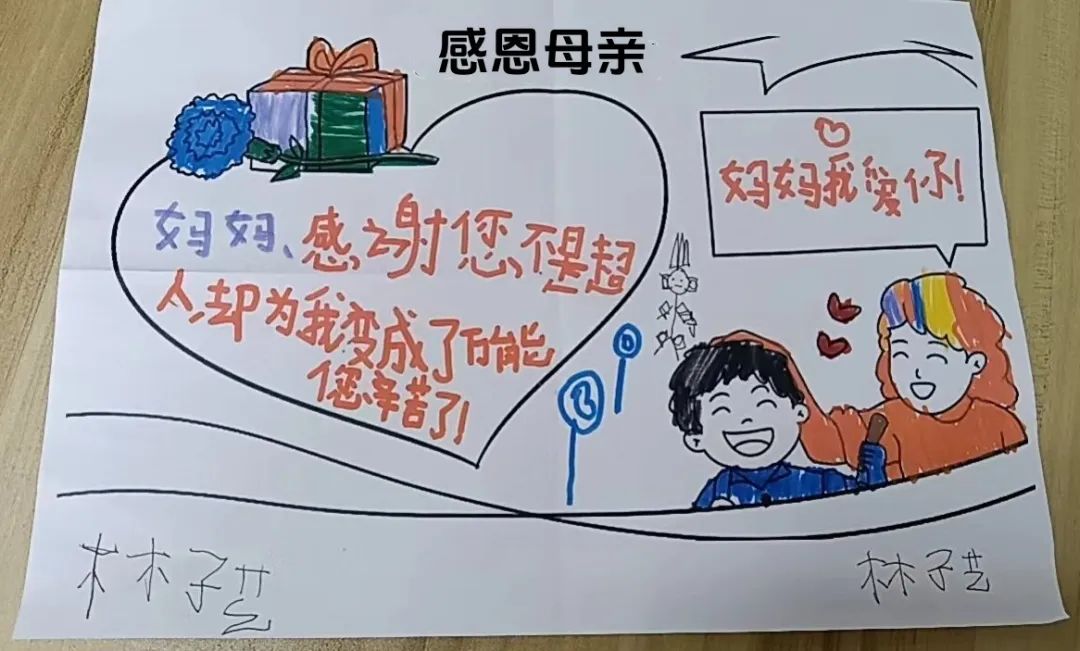 感恩母亲
妈妈我爱你!
妈妈、感谢您,不是超
人,却为我变成了万能
您辛苦了!
林子芸
林子芸